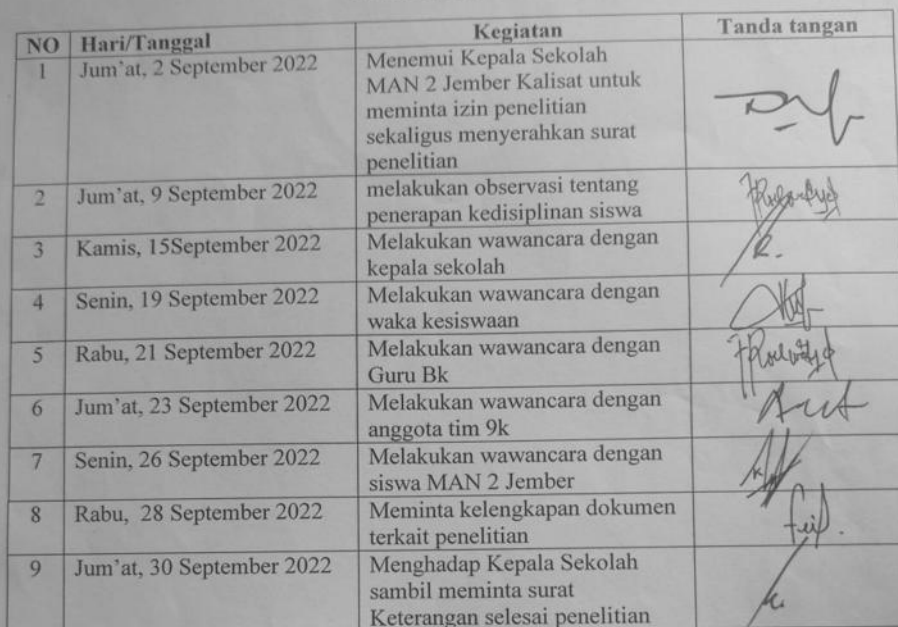 NO Hari/Tanggal Kegiatan Tanda tangan
1 Jum'at, 2 September 2022 Menemui Kepala Sekolah
MAN 2 Jember Kalisat untuk
meminta izin penelitian
sekaligus menyerahkan surat
penelitian
2 Jum'at, 9 September 2022 melakukan observasi tentang
penerapan kedisiplinan siswa
3 Kamis, 15September 2022 Melakukan wawancara dengan
kepala sekolah
4 Senin, 19 September 2022 Melakukan wawancara dengan
waka kesiswaan
5 Rabu, 21 September 2022 Melakukan wawancara dengan
Guru Bk
6 Jum'at, 23 September 2022 Melakukan wawancara dengan
anggota tim 9k
7 Senin, 26 September 2022 Melakukan wawancara dengan
siswa MAN 2 Jember
8 Rabu, 28 September 2022 Meminta kelengkapan dokumen
terkait penelitian
9 Jum'at, 30 September 2022 Menghadap Kepala Sekolah
sambil meminta surat
Keterangan selesai penelitian